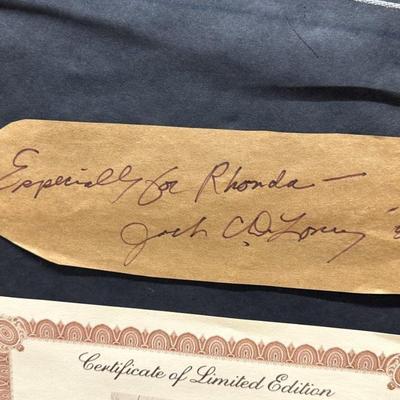 Especially for Rhonda —
Jack C. DeLoney
Certificate of Limited Edition